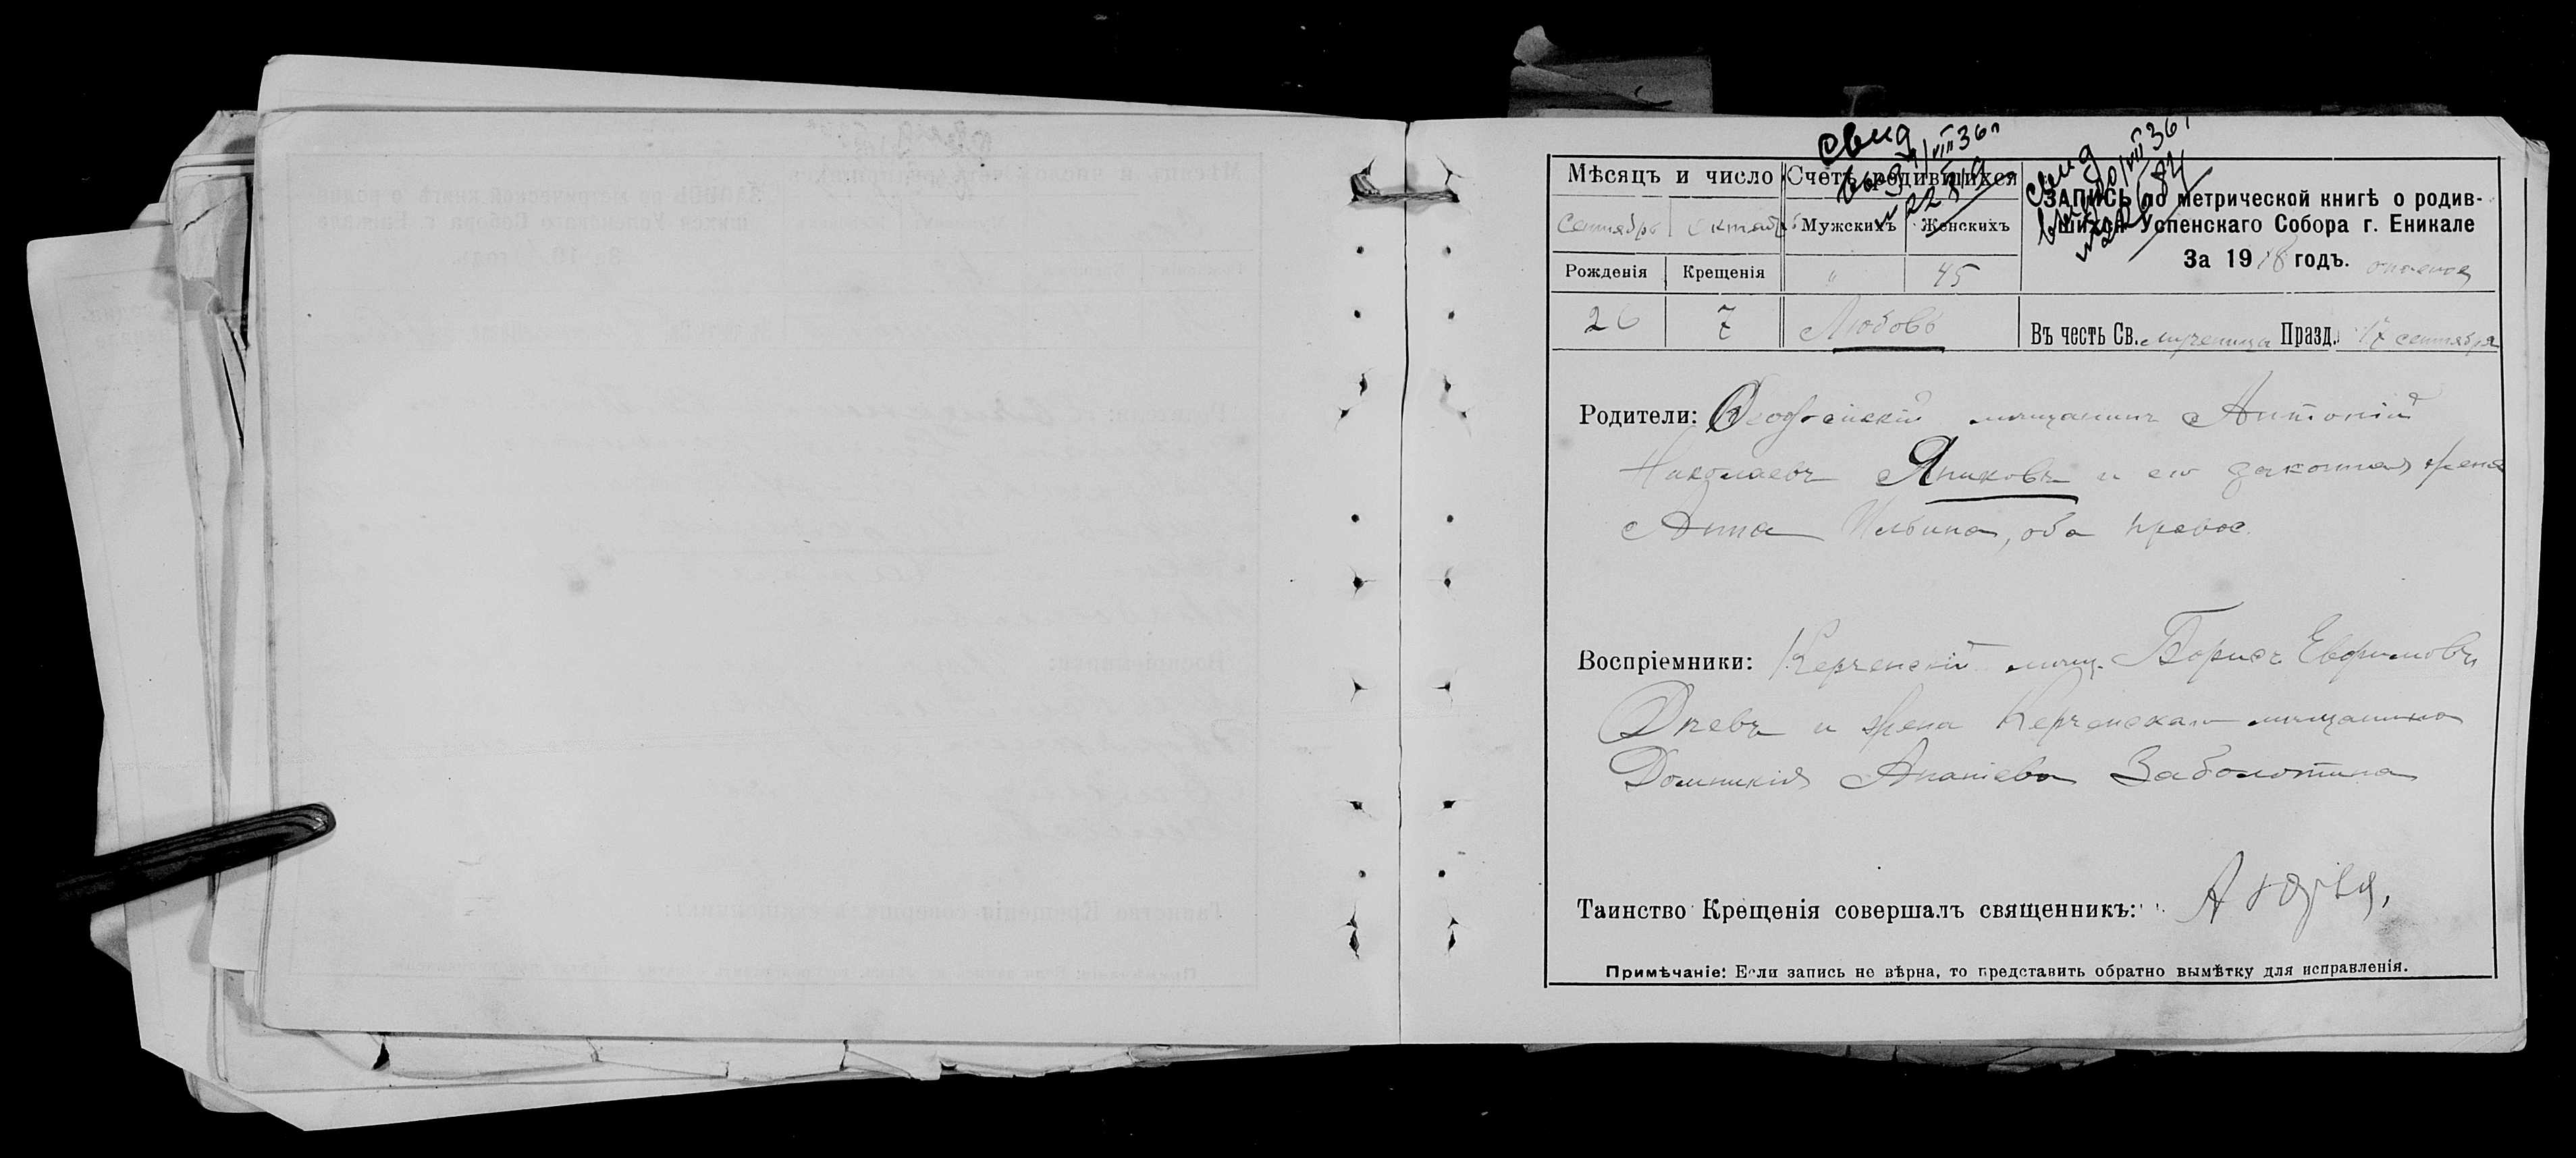 свид
Мѣсяцъ и число Счетъ родившихся
ЗАПИСЬ по метрической книгѣ о родив-
шихся Успенскаго Собора г. Еникале
За 1918 годъ.
Сентябрь Октябрь Мужскихъ Женскихъ
Рожденія Крещенія " 45
26 7 Любовь Въ честь Св. мученицы Празд. 17 сентября
Родители: Ѳеодосійскій мѣщанинъ Антоній
Николаевъ Яниковъ и его законная жена
Анна Ильина, оба правос.
Воспріемники: Керченскій мѣщ. Борисъ Евфимовъ
и жена Керченскаго мѣщанина
Домникія Ананіева Заболотина
Таинство Крещенія совершалъ священникъ:
Примѣчаніе: Если запись не вѣрна, то представить обратно вымѣтку для исправленія.